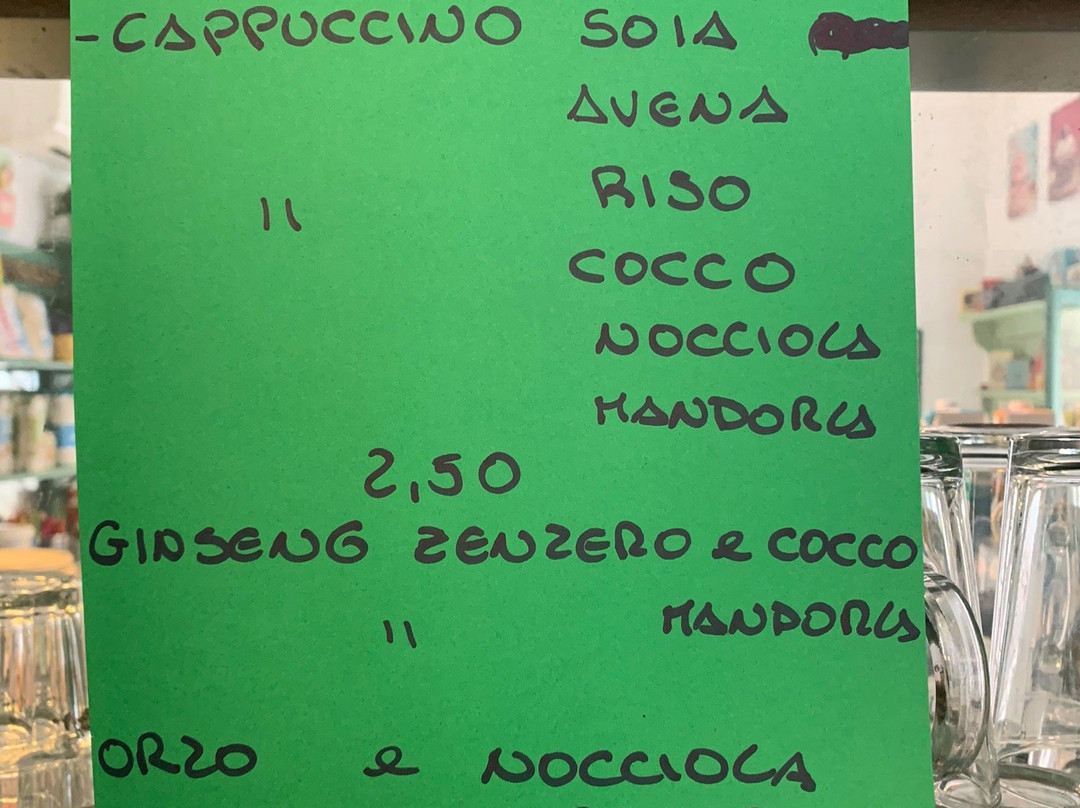 -CAPPUCCINO SOIA
AVENA
" RISO
COCCO
NOCCIOLA
MANDORLA
2,50
GINSENG ZENZERO e COCCO
" MANDORLA
ORZO e NOCCIOLA